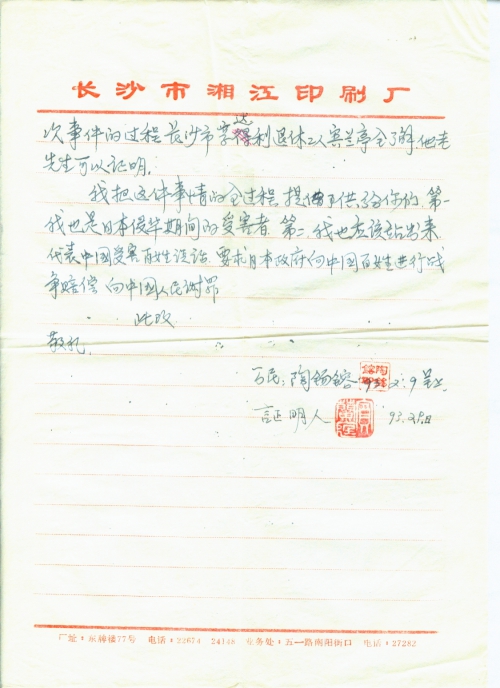 长沙市湘江印刷厂
次事件的过程 长沙市孚达利退休工人宾兰亭全了解他老
先生可以证明.
我把这件事情的全过程 提供了你们. 第一
我也是日本侵华期间的受害者. 第二. 我也应该站出来
代表中国受害百姓说话. 要求日本政府向中国百姓进行战
争赔偿 向中国人民谢罪
此致
敬礼.
公民: 陶锡镕 93.2.9
証明人 93.2.9日
厂址:东牌楼77号 电话:22674 24148 业务处:五一路南阳街口 电话:27282